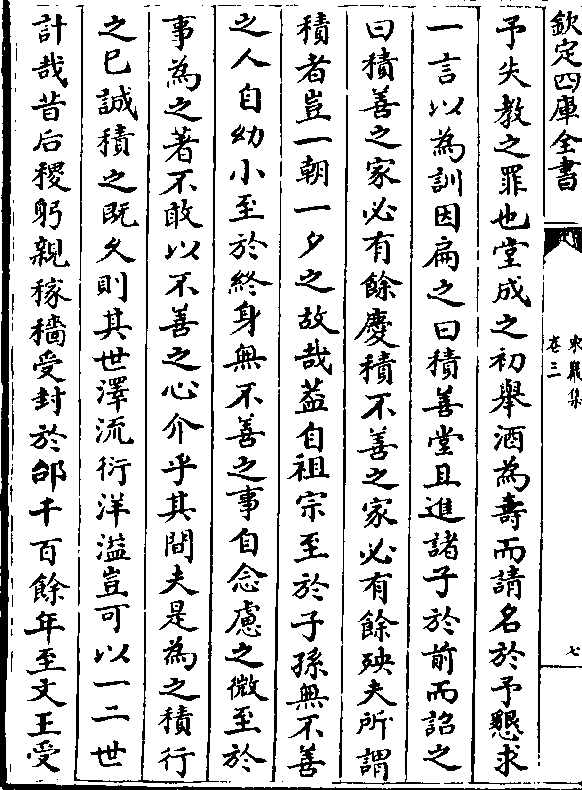 欽定四庫全書
東巖集
卷三
七
予失教之罪也堂成之初舉酒為壽而請名於予懇求
一言以為訓因扁之曰積善堂且進諸子於前而詔之
曰積善之家必有餘慶積不善之家必有餘殃夫所謂
積者豈一朝一夕之故哉葢自祖宗至於子孫無不善
之人自幼小至於終身無不善之事自念慮之微至於
事為之著不敢以不善之心介乎其間夫是為之積行
之已誠積之既久則其世澤流衍洋溢豈可以一二世
計哉昔后稷躬親稼穡受封於邰千百餘年至文王受